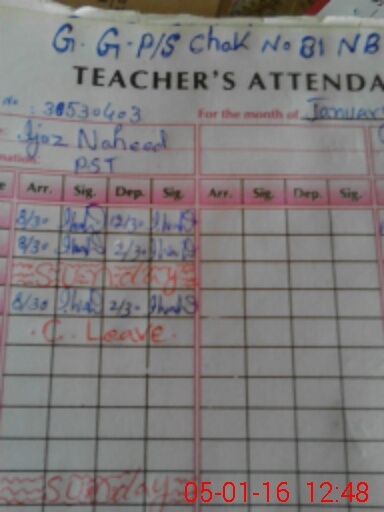 G. G. P/S Chak No 81 NB
TEACHER'S ATTENDA
No : 30530403
For the month of January
Ijaz Naheed
PST
Arr. Sig. Dep. Sig. Arr. Sig. Dep. Sig.
8/30 12/30
8/30 2/30
Sunday
8/30 2/30
C. Leave.
Sunday
05-01-16 12:48